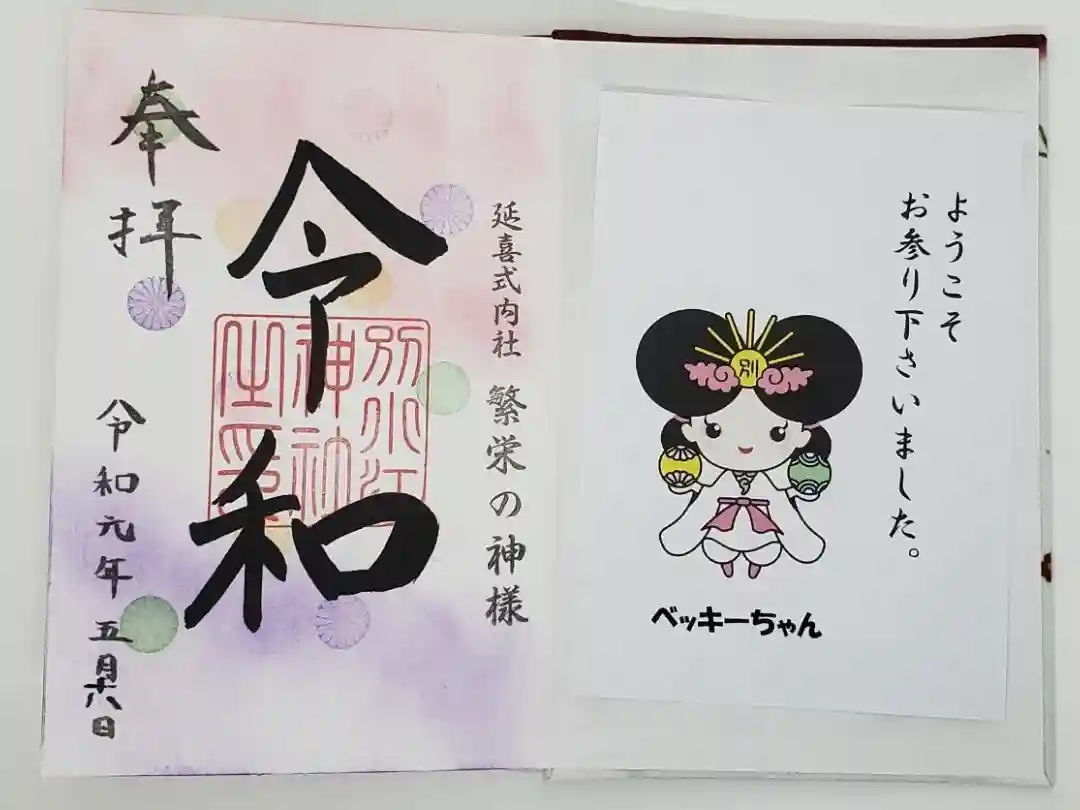 ようこそ
お参り下さいました。
別
ベッキーちゃん
延喜式内社 繁栄の神様
令和
別小江
神社
之印
奉拝
令和元年五月十八日